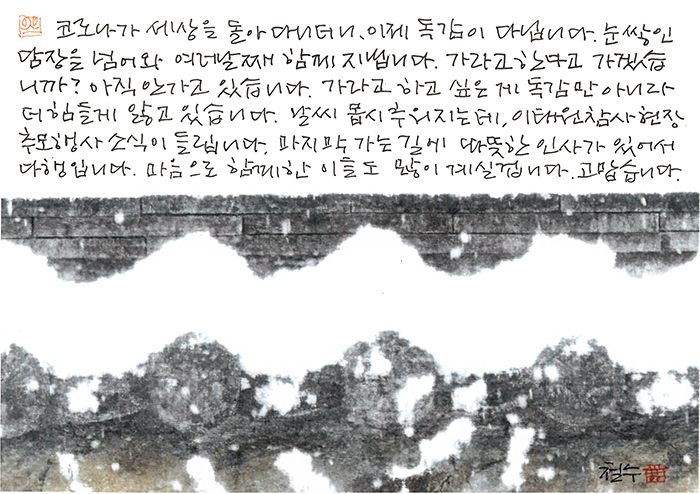 코로나가 세상을 돌아 다니더니, 이제 독감이 다닙니다. 눈 쌓인
담장을 넘어와 여러날째 함께 지냅니다. 가라고 한다고 가겠습
니까? 아직 안가고 있습니다. 가라고 하고 싶은 게 독감만 아니라
더 힘들게 앓고 있습니다. 날씨 몹시 추워지는데, 이태원참사 현장
추모행사 소식이 들립니다. 마지막 가는 길에 따뜻한 인사가 있어서
다행입니다. 마음으로 함께한 이들도 많이 계실겁니다. 고맙습니다.
철수